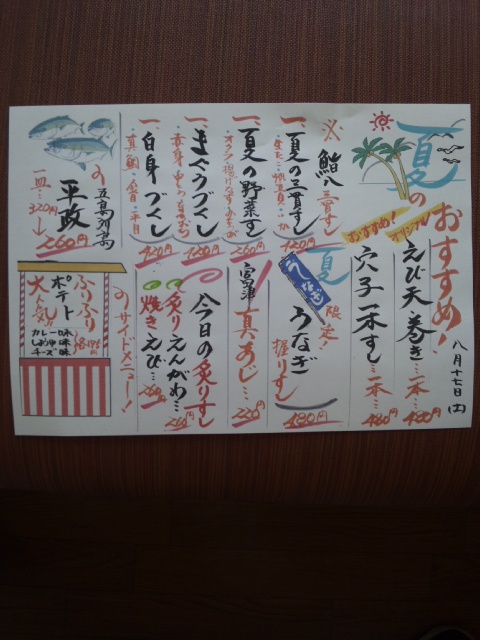 夏のおすすめ!
八月十七日(土)
オリジナル
えび天巻き…一本…480円
おすすめ!
穴子一本すし…一本…480円
※鮨八三貫すし
一、夏の三貫すし
420円
一、夏の野菜すし
260円
一、まぐろづくし
720円
一、白身づくし
420円
五島列島の
平政
一皿…320円→260円
夏限定!
うなぎ
うなぎ握りすし
480円
真あじ…
220円
今日の炙りすし
炙りえんがわ…
260円
焼きえび…
サイドメニュー!
ふりふりポテト
大人気!!
カレー味
しょうゆ味
チーズ味